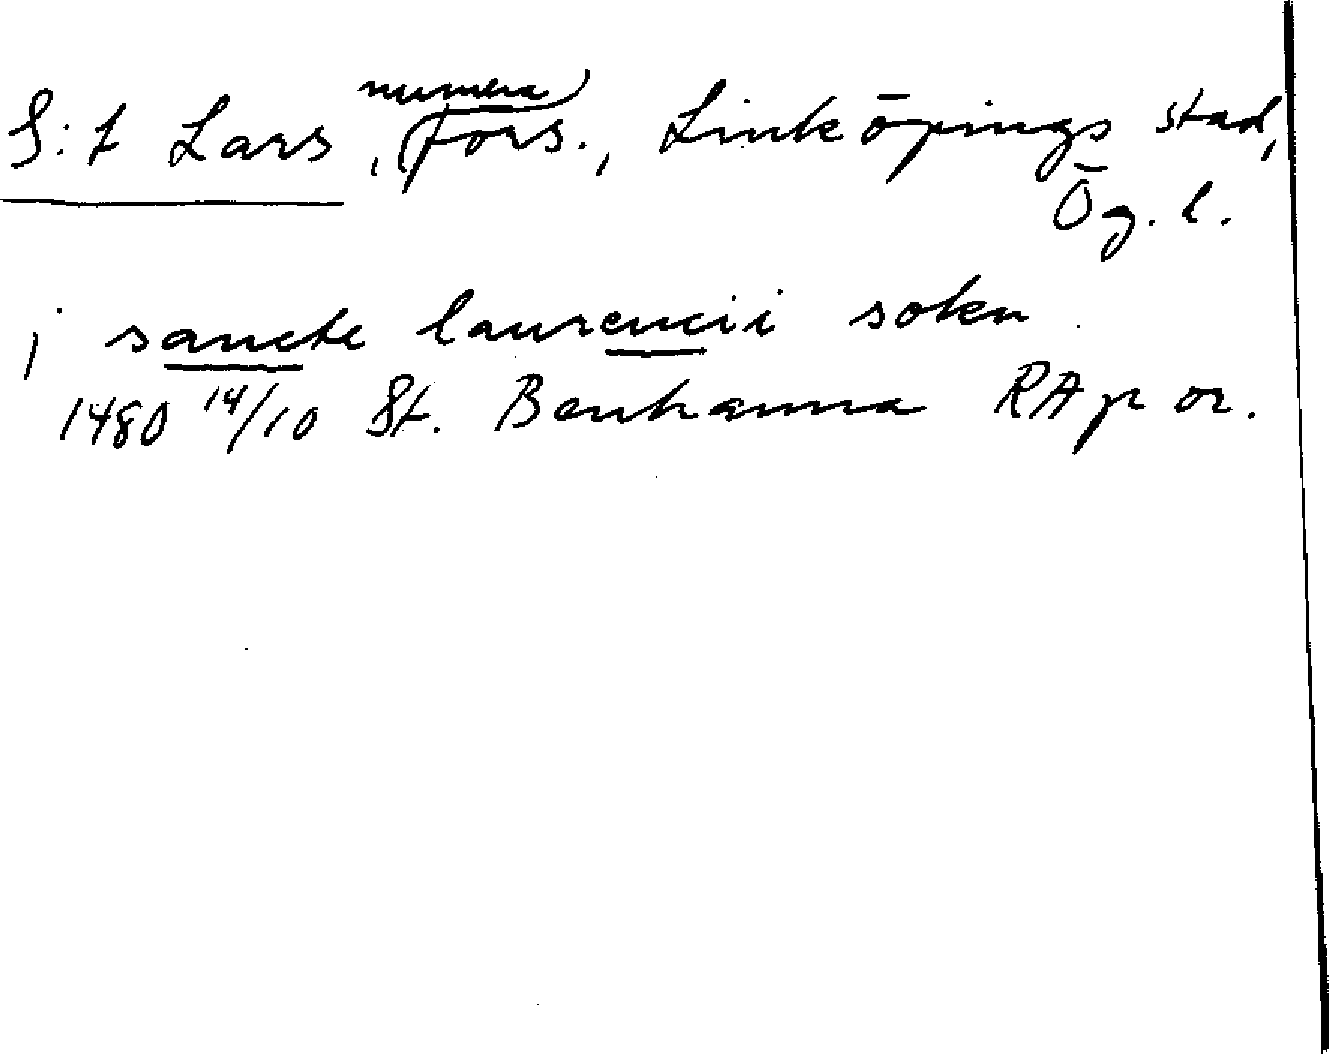 S:t Lars, numera fors., Linköpings stad,
Ög. l.
j sancte laurencii sokn
1480 14/10 St. Benhamra RAp or.